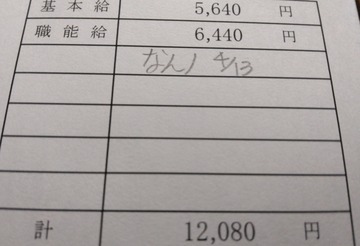 基本給 5,640 円
職能給 6,440 円
なん 4/13
計 12,080 円